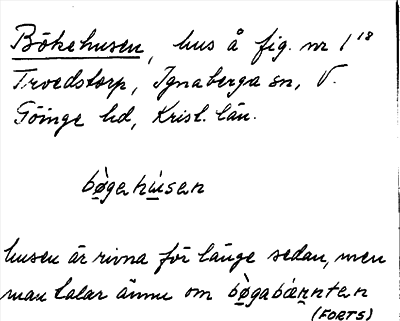 Bökehusen, hus å fig. nr 1¹⁸
Troedstorp, Ignaberga sn, V.
Göinge hd, Krist. län.
bø̀gehúsen
husen är rivna för länge sedan, men
man talar ännu om bø̀gabærnten
(FORTS)